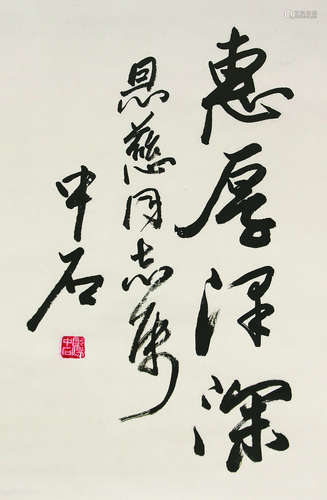 惠厚泽深
恩慈同志属
中石